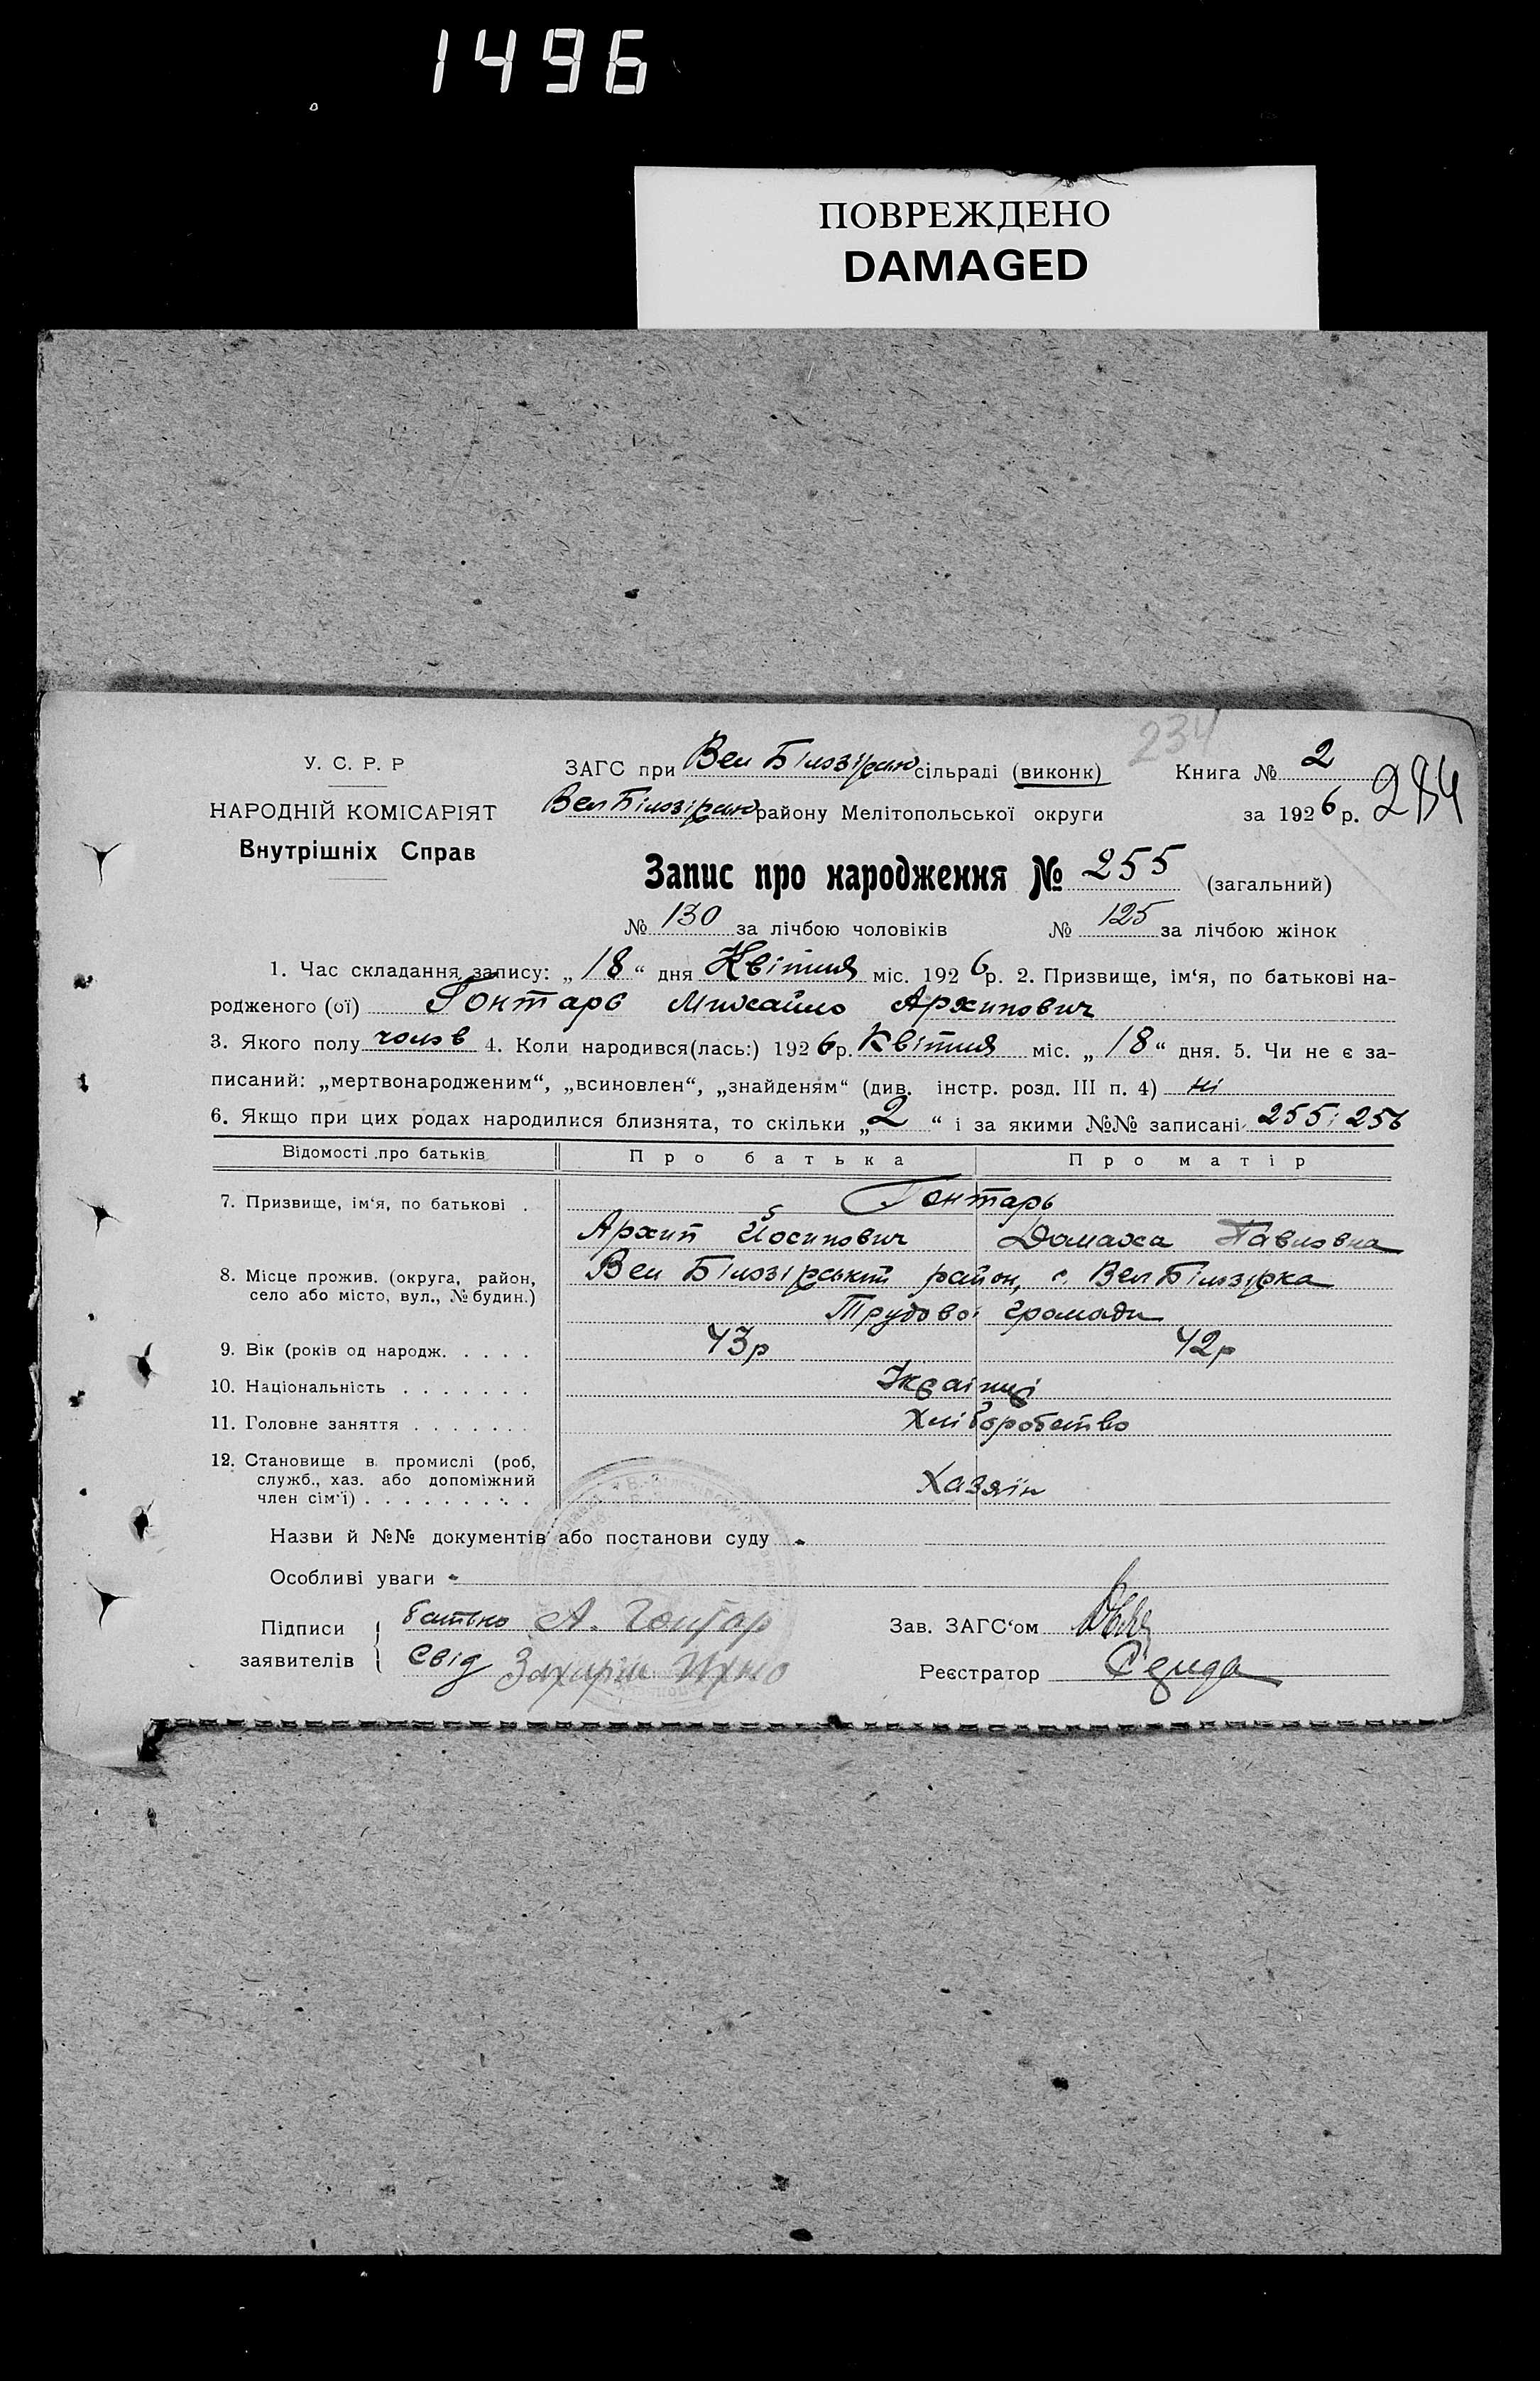 1496
ПОВРЕЖДЕНО
DAMAGED
234
У. С. Р. Р
НАРОДНІЙ КОМІСАРІЯТ
Внутрішніх Справ
ЗАГС при Вел Білозірськ сільраді (виконк)
Книга № 2
Вел Білозірськ району Мелітопольської округи
за 1926 р. 284
Запис про народження № 255 (загальний)
№ 130 за лічбою чоловіків № 125 за лічбою жінок
1. Час складання запису: „18“ дня Квітня міс. 1926 р. 2. Призвище, ім‘я, по батькові на-
родженого (ої) Гонтарь Михайло Архипович
3. Якого полу чолов 4. Коли народився(лась:) 1926 р. Квітня міс. „18“ дня. 5. Чи не є за-
писаний: „мертвонародженим“, „всиновлен“, „знайденям“ (див. інстр. розд. III п. 4) ні
6. Якщо при цих родах народилися близнята, то скільки „2“ і за якими №№ записані 255; 256
Відомості про батьків
Про батька
Про матір
7. Призвище, ім‘я, по батькові .
Гонтарь
Архип Йосипович
Домаха Павловна
8. Місце прожив. (округа, район,
село або місто, вул., № будин.)
Вел Білозірський район, с. Вел Білозірка
Трудової громади
9. Вік (років од народж. . . . . 43р 42р
10. Національність . . . . . . . Українці
11. Головне заняття . . . . . . . Хліборобство
12. Становище в промислі (роб,
служб., хаз. або допоміжний
член сім‘ї) . . . . . . . . . Хазяїн
Назви й №№ документів або постанови суду
Особливі уваги
Підписи
заявителів
батько А. Гонтар
Свід Захарій
Зав. ЗАГС‘ом
Реєстратор Середа